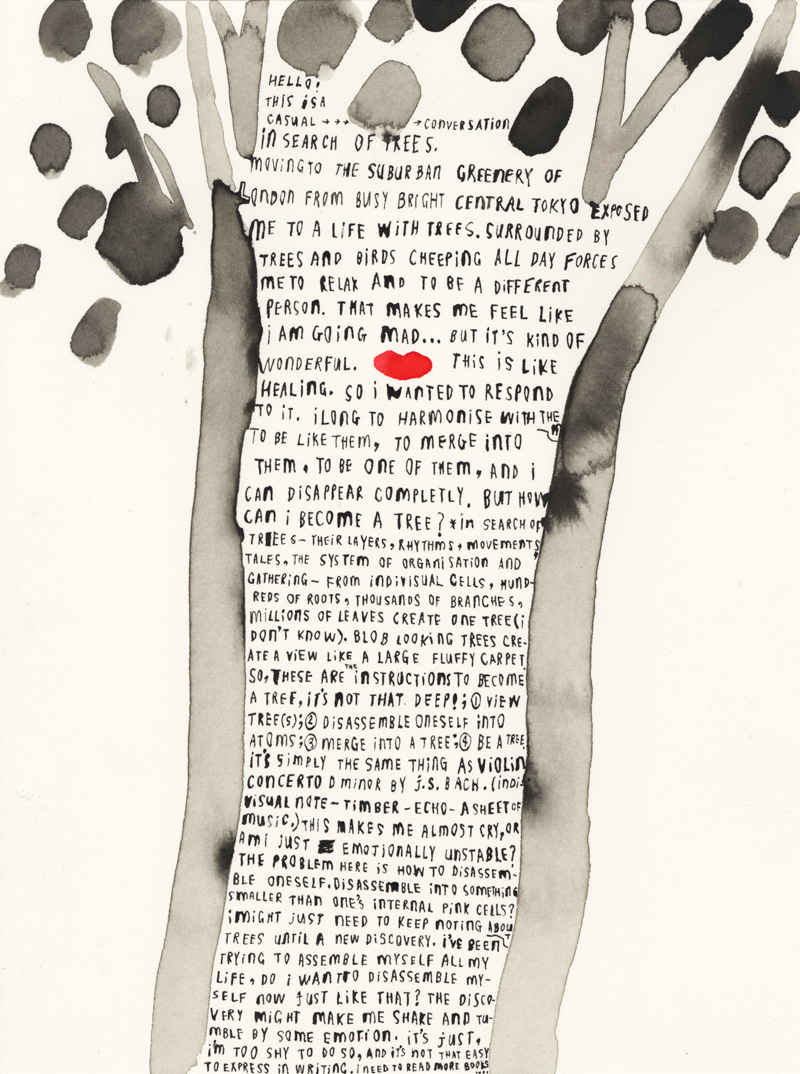 HELLO!
THIS iS A
CASUAL →→→ → CONVERSATION
iN SEARCH OF TREES.
MOVING TO THE SUBURBAN GREENERY OF
LONDON FROM BUSY BRIGHT CENTRAL TOKYO EXPOSED
ME TO A LIFE WITH TREES. SURROUNDED BY
TREES AND BIRDS CHEEPING ALL DAY FORCES
ME TO RELAX AND TO BE A DIFFERENT
PERSON. THAT MAKES ME FEEL LIKE
i AM GOING MAD... BUT IT'S KIND OF
WONDERFUL. THIS iS LIKE
HEALING. SO i WANTED TO RESPOND
TO iT. i LONG TO HARMONISE WITH THEM
TO BE LIKE THEM, TO MERGE iNTO
THEM, TO BE ONE OF THEM, AND i
CAN DISAPPEAR COMPLETLY. BUT HOW
CAN i BECOME A TREE? *iN SEARCH OF
TREES- THEIR LAYERS, RHYTHMS, MOVEMENTS,
TALES, THE SYSTEM OF ORGANISATION AND
GATHERING- FROM INDIVISUAL CELLS, HUND-
REDS OF ROOTS, THOUSANDS OF BRANCHES,
MILLIONS OF LEAVES CREATE ONE TREE(i
DON'T KNOW). BLOB LOOKING TREES CRE-
ATE A VIEW LIKE A LARGE FLUFFY CARPET
SO, THESE ARE THE iNSTRUCTIONS TO BECOME
A TREE, iT'S NOT THAT DEEP!; ① VIEW
TREE(S); ② DISASSEMBLE ONESELF iNTO
ATOMS; ③ MERGE iNTO A TREE; ④ BE A TREE
iT'S SIMPLY THE SAME THING AS VIOLIN
CONCERTO D MINOR BY J.S. BACH. (iNDi-
VISUAL NOTE- TIMBER -ECHO- A SHEET OF
MUSIC.) THIS MAKES ME ALMOST CRY, OR
AM i JUST EMOTIONALLY UNSTABLE?
THE PROBLEM HERE IS HOW TO DISASSEM-
BLE ONESELF. DISASSEMBLE iNTO SOMETHING
SMALLER THAN ONE'S INTERNAL PINK CELLS?
i MIGHT JUST NEED TO KEEP NOTING ABOUT
TREES UNTIL A NEW DISCOVERY. i'VE BEEN
TRYING TO ASSEMBLE MYSELF ALL MY
LIFE, DO i WANT TO DISASSEMBLE MY-
SELF NOW JUST LIKE THAT? THE DISCO-
VERY MIGHT MAKE ME SHAKE AND TU-
MBLE BY SOME EMOTION. iT'S JUST,
i'M TOO SHY TO DO SO, AND iT'S NOT THAT EASY
TO EXPRESS IN WRITING. i NEED TO READ MORE BOOKS